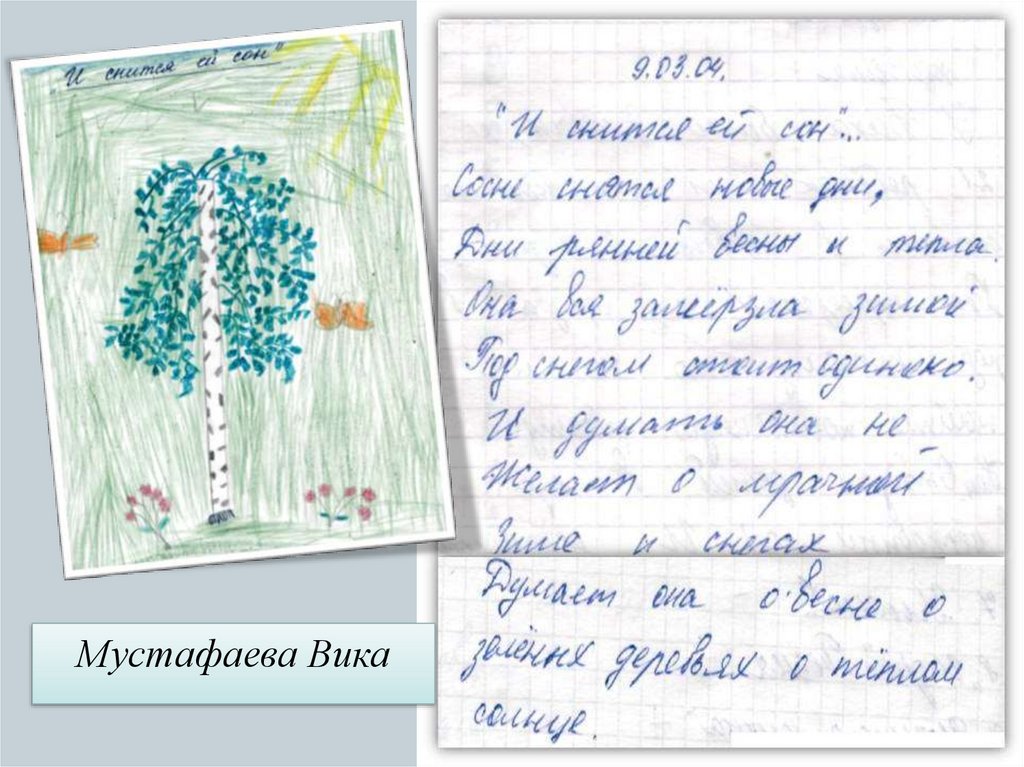 "И снится ей сон"
9.03.04.
"И снится ей сон"...
Сосне снятся новые дни,
Дни рянней весны и тепла.
Она вся замёрзла зимой
Под снегом стоит одиноко.
И думать она не
Желат о мрачной
Зиме и снегах
Думает она о весне о
зелёных деревьях о тёплом
солнце.
Мустафаева Вика